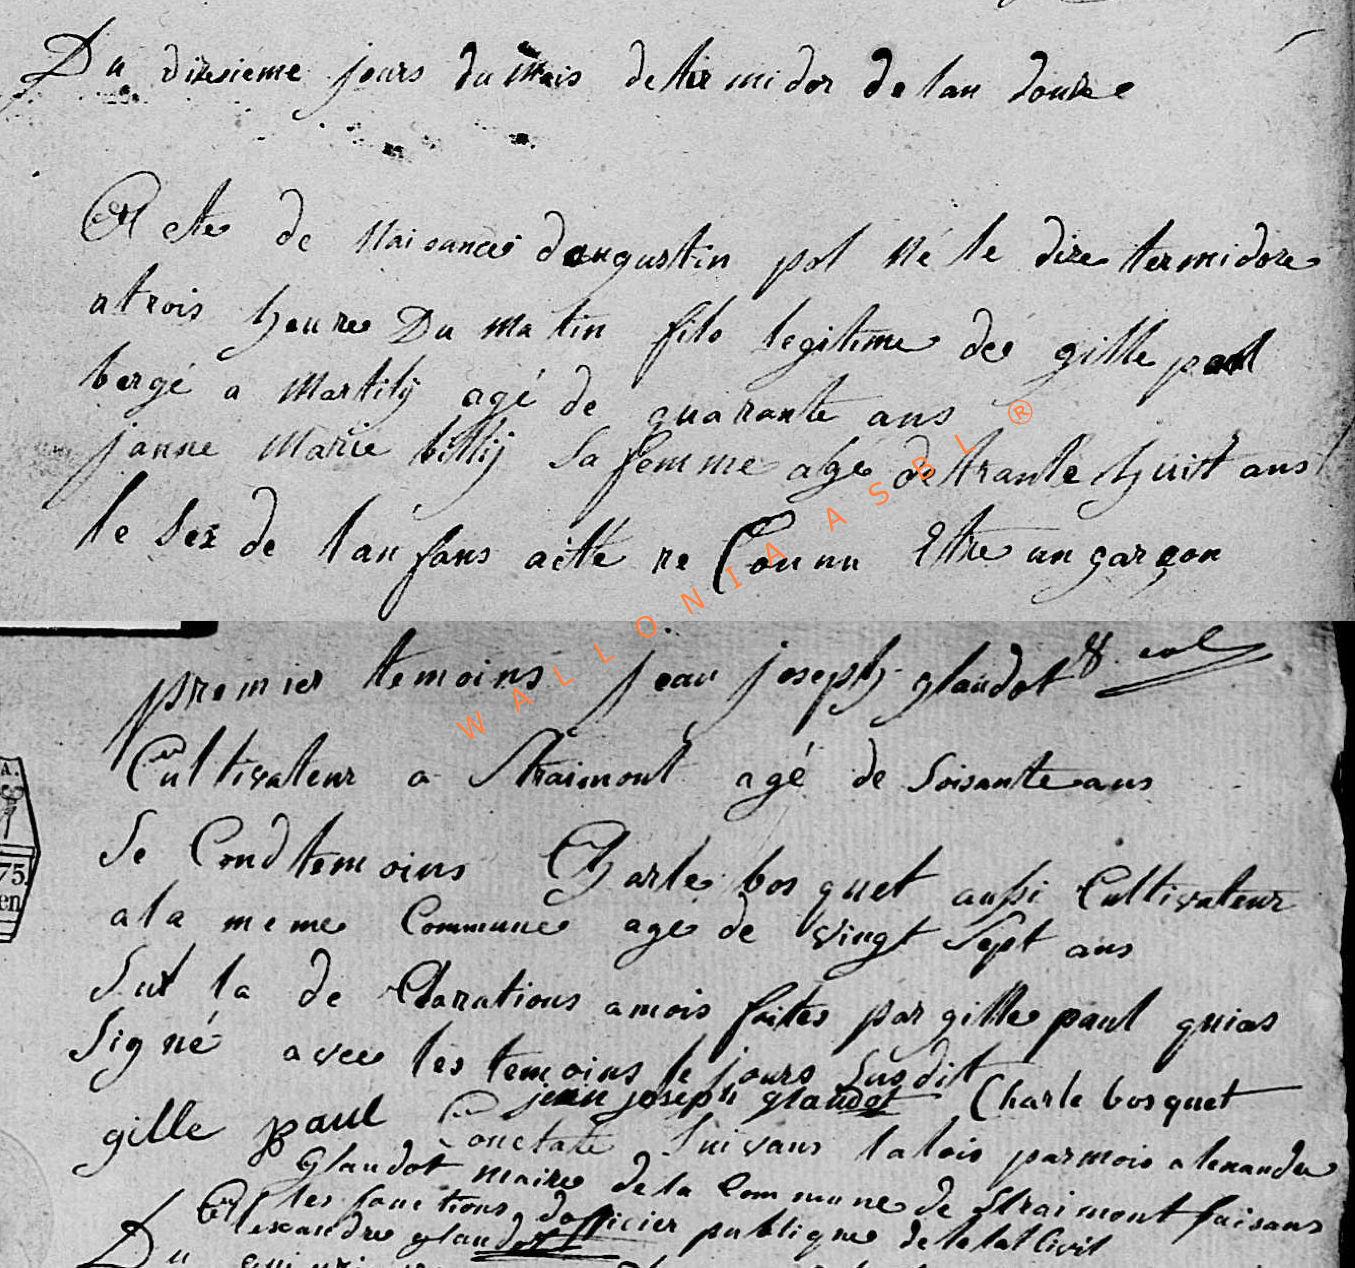 Du dixsieme jours du mois de tir midor de lan douze
Acte de Naisance daugustin pol Né le dixe termidore
a trois heure Du matin fils legitime de gille paul
bergé a Martilij agé de quarante ans
janne Marie billij Sa femme agé de trante huit ans
le Sex de lan fans aitté re Connu Etre un garçon
premier temoins jean joseph glaudot
Cultivateur a Straimont agé de Soisante ans
Se Cond temoins Charle bosquet aussi Cultivateur
a la meme Commune agé de vingt Sept ans
Sur la de Clarations a mois faites par gille paul quias
Signé avec les temoins le jours Susdit
jean joseph glaudot Charle bosquet
gille paul Conctate Suivans la lois par mois alexandre
Glaudot maire de la Commune de Straimont faisans
les fonctions dofficier publique de letat Civil
Alexandre glaudot
Du
75.
en
A.
WALLONIA ASBL ®